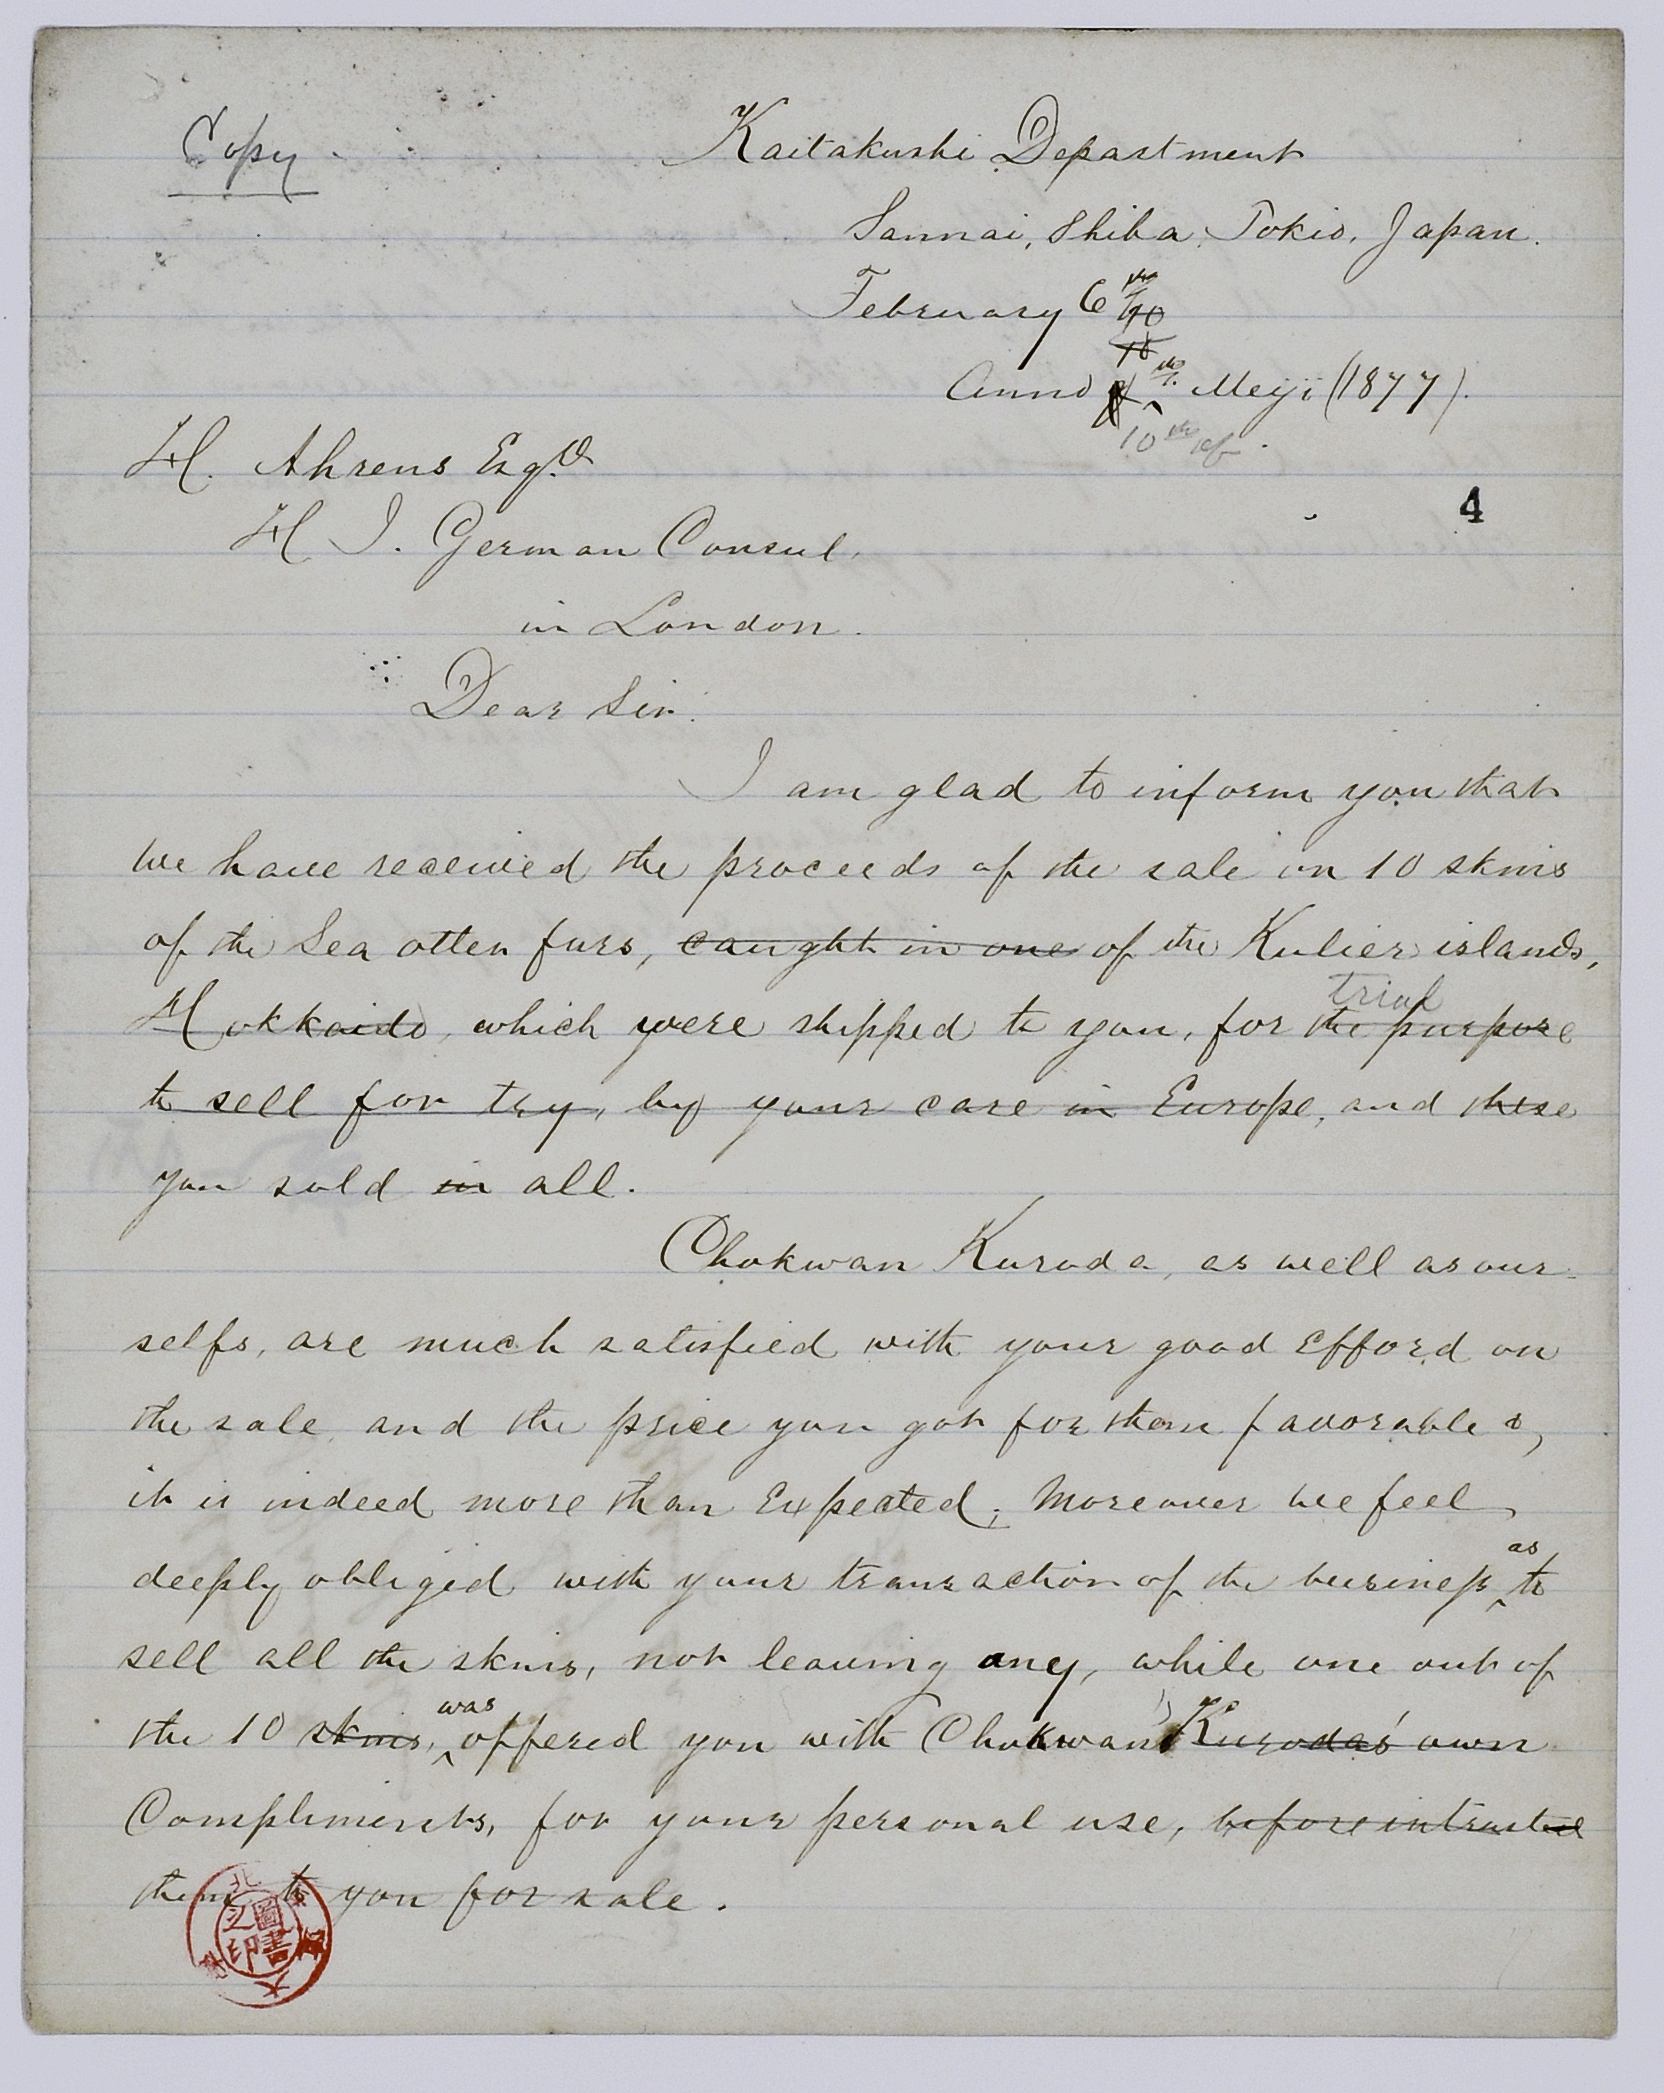 Copy.
Kaitakushi Department
Sannai, Shiba, Tokio, Japan.
February 6th
Anno th. Meiji (1877).
10th of.
H. Ahrens Esqr.
4
H. I. German Consul,
in London.
Dear Sir.
I am glad to inform you that
we have received the proceeds of the sale on 10 skins
of the Sea otter furs, caught in one of the Kulier islands,
trial
Hokkaido, which were shipped to you, for the purpose
to sell for try, by your care in Europe, and these
you sold in all.
Chokwan Kuroda, as well as our
selfs, are much satisfied with your good Efford on
the sale, and the price you got for them favorable,
it is indeed more than Expected; Moreover we feel
as
deeply obliged with your transaction of the business to
sell all the skins, not leaving any, while one out of
was
the 10 skins, offered you with Chokwan's Kuroda's own
Compliments, for your personal use, before intrusted
them to you for sale.
北大圖書之印